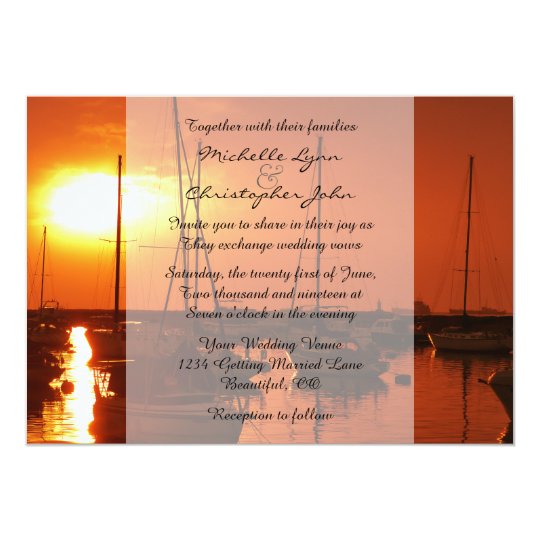 Together with their families
Michelle Lynn
&
Christopher John
Invite you to share in their joy as
They exchange wedding vows
Saturday, the twenty first of June,
Two thousand and nineteen at
Seven o'clock in the evening
Your Wedding Venue
1234 Getting Married Lane
Beautiful, CO
Reception to follow